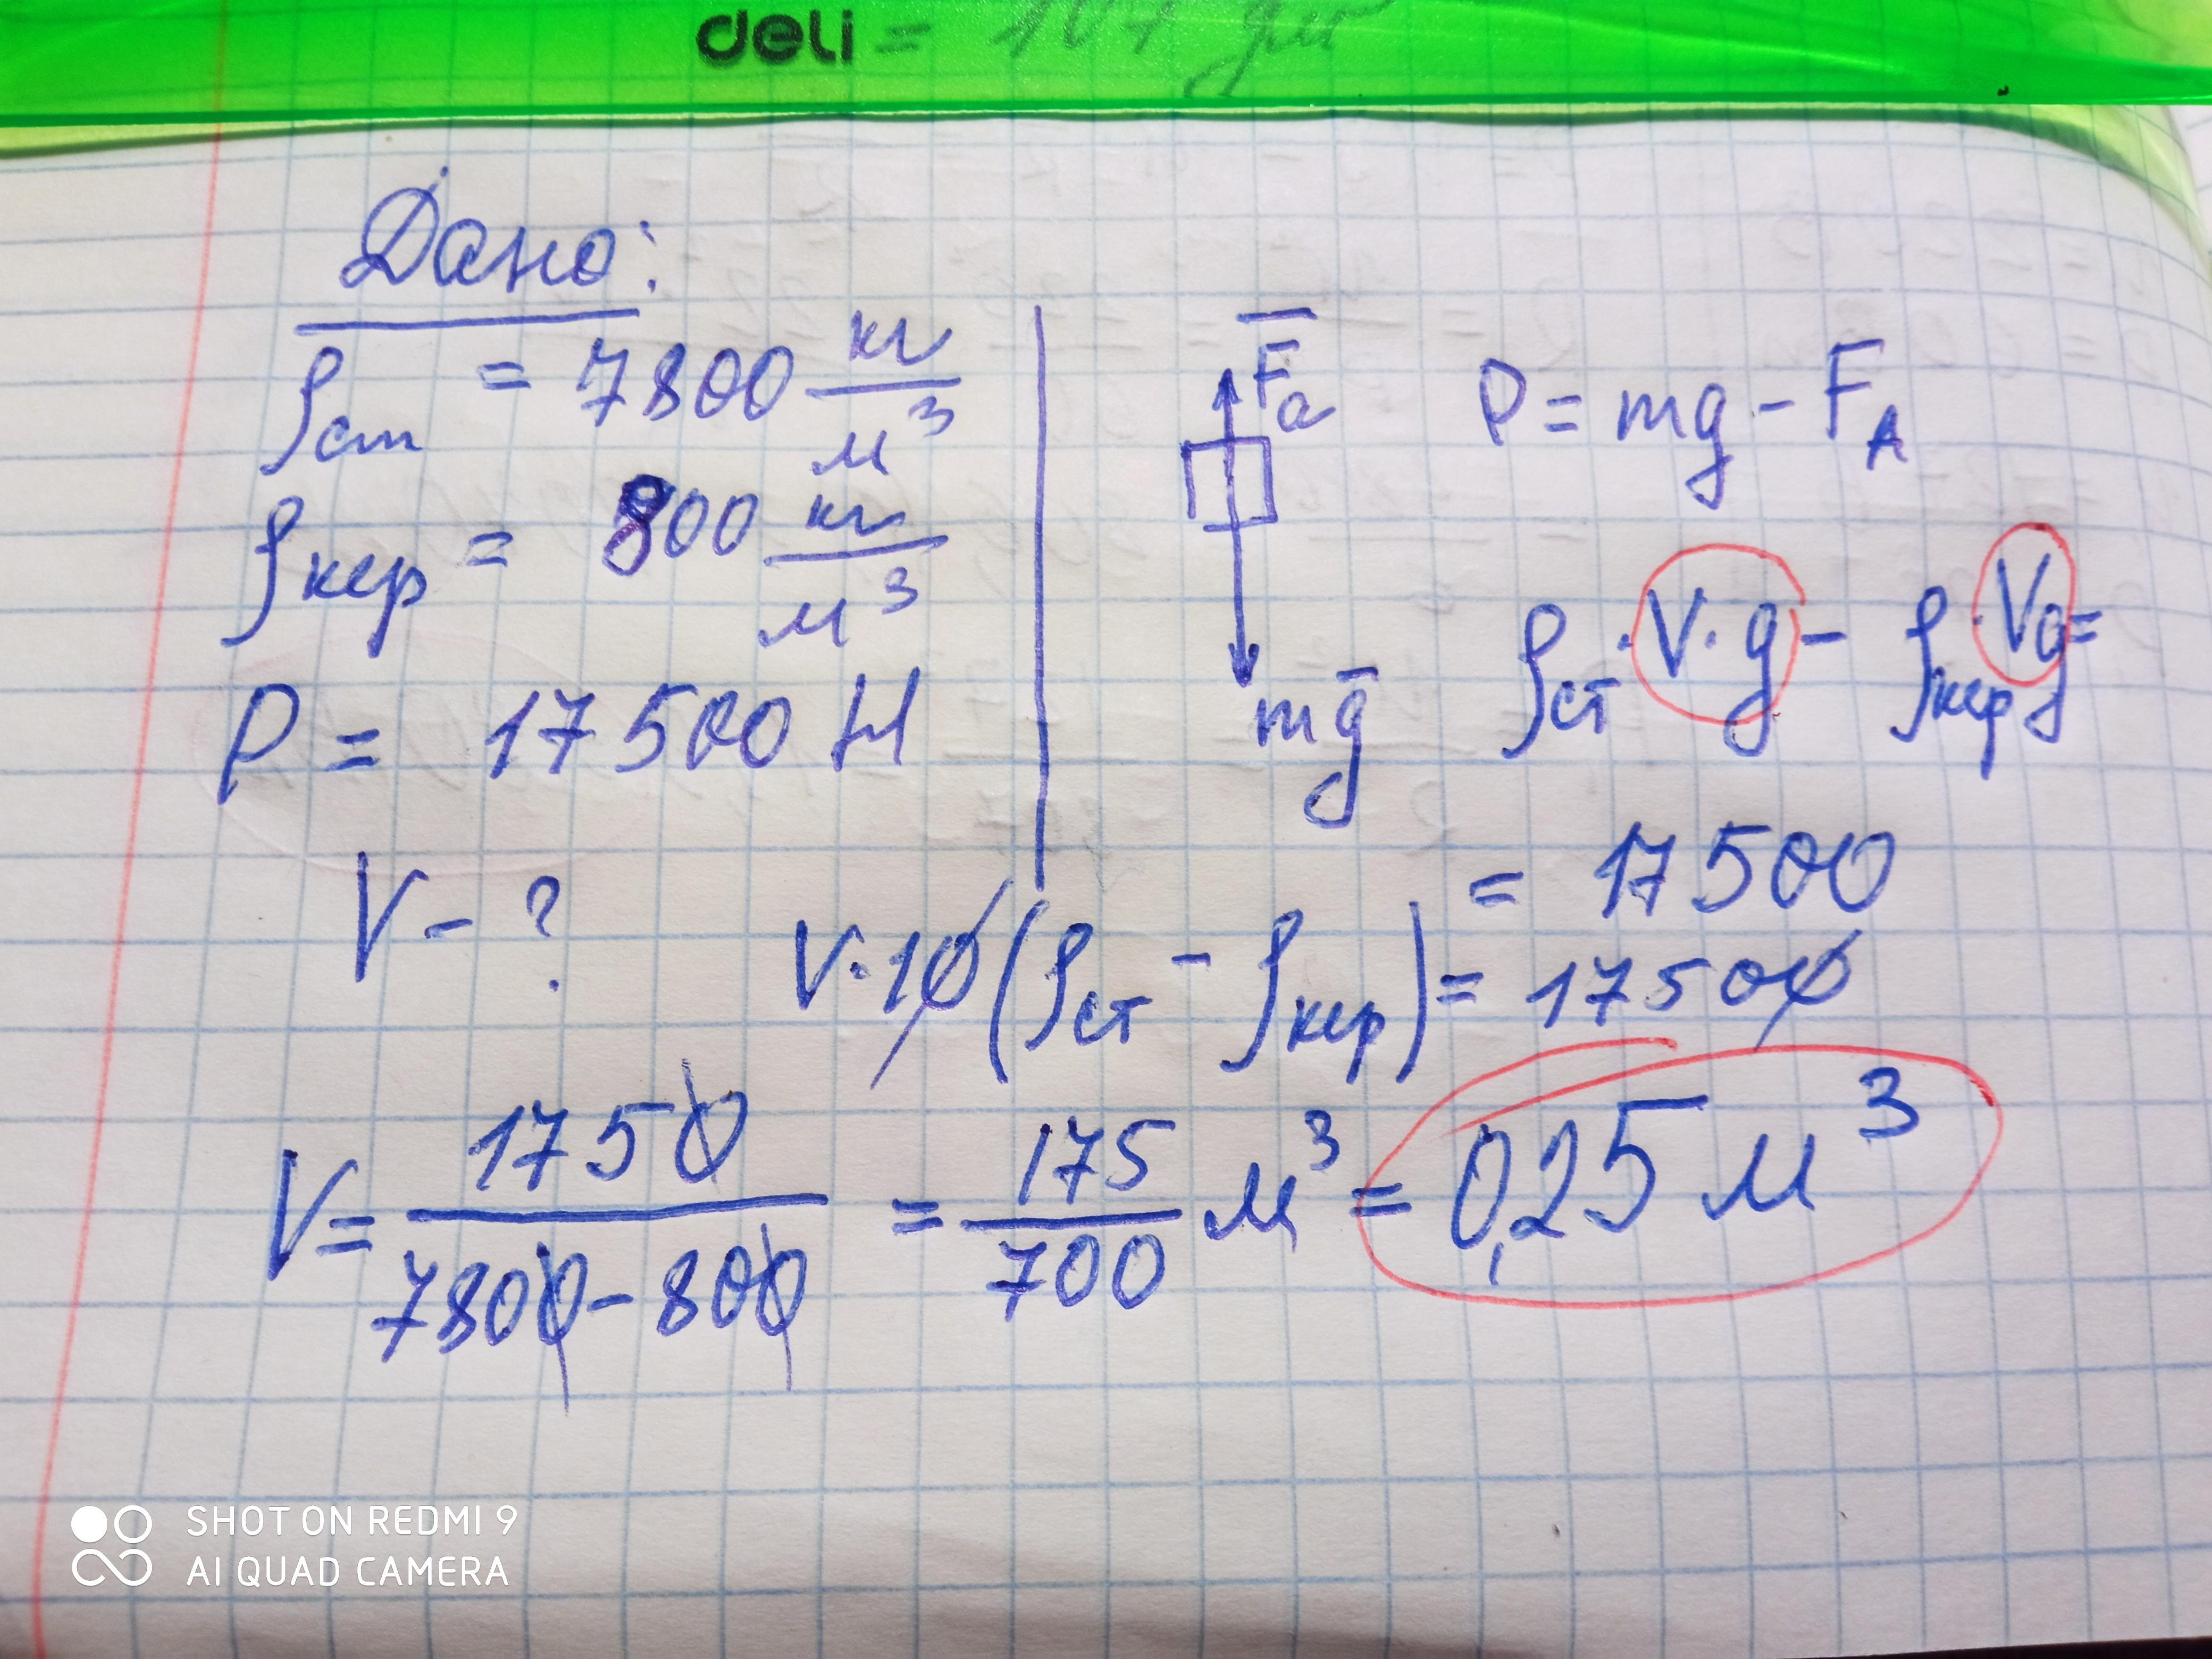 deli = 107 дм
Дано:
ρст = 7800 кг/м³
ρкер = 800 кг/м³
P = 17500 Н
V - ?
Fa
mg
P = mg - FA
ρст · V · g - ρкер · Vg =
= 17500
V · 10 (ρст - ρкер) = 17500
V = 1750 / 7800 - 800 = 175/700 м³ = 0,25 м³
SHOT ON REDMI 9
AI QUAD CAMERA